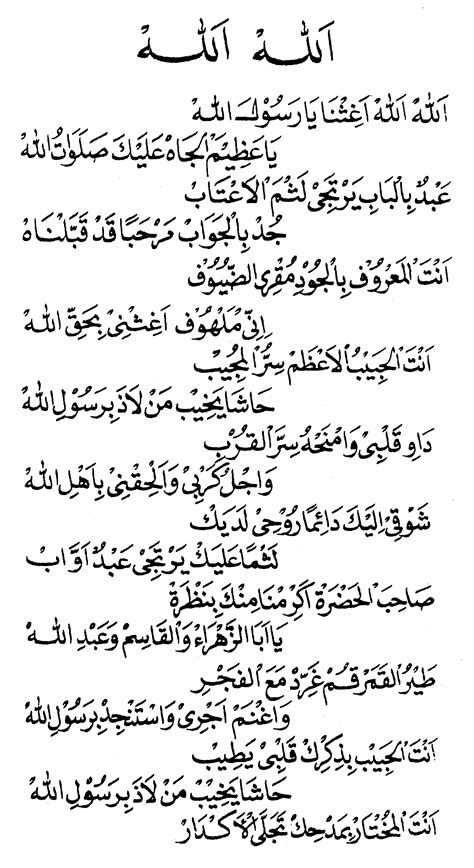 اَللهْ اَللهْ
اَللهْ اَللهْ اَغِثْنَا يَا رَسُوْلَ اللهْ
يَا عَظِيْمَ الْجَاهْ عَلَيْكَ صَلَوٰتُ اللهْ
عَبْدٌ بِالْبَابِ يَرْتَجِىْ لَثْمَ الْاَعْتَابْ
جُدْ بِالْجَوَابْ مَرْحَبًا قَدْ قَبِلْنَاهْ
اَنْتَ الْمَعْرُوْفْ بِالْجُوْدِ مُقْرِى الضُّيُوْفْ
اِنِّىْ مَلْهُوْفْ اَغِثْنِىْ بِحَقِّ اللهْ
اَنْتَ الْحَبِيْبُ الْاَعْظَمْ سِرُّ الْمُجِيْبْ
حَاشَا يَخِيْبْ مَنْ لَاذَ بِرَسُوْلِ اللهْ
دَاوِ قَلْبِىْ وَامْنَحْهُ سِرَّ الْقُرْبِ
وَاجْلُ كَرْبِىْ وَالْحِقْنِىْ بِاَهْلِ اللهْ
شَوْقِىْ اِلَيْكَ دَائِمًا رُوْحِىْ لَدَيْكْ
لَثْمًا عَلَيْكْ يَرْتَجِىْ عَبْدٌ اَوَّابْ
صَاحِبَ الْحَضْرَةْ اَكْرِمْنَا مِنْكَ بِنَظْرَةْ
يَا اَبَا الزَّهْرَاءْ وَالْقَاسِمْ وَعَبْدِ اللهْ
طَيْرُ الْقَمَرْ قُمْ غَرِّدْ مَعَ الْفَجْرِ
وَاغْنَمْ اَجْرِىْ وَاسْتَنْجِدْ بِرَسُوْلِ اللهْ
اَنْتَ الْحَبِيْبْ بِذِكْرِكْ قَلْبِىْ يَطِيْبْ
حَاشَا يَخِيْبْ مَنْ لَاذَ بِرَسُوْلِ اللهْ
اَنْتَ الْمُخْتَارْ بِمَدْحِكْ تَجَلَّى الْاَكْدَارْ